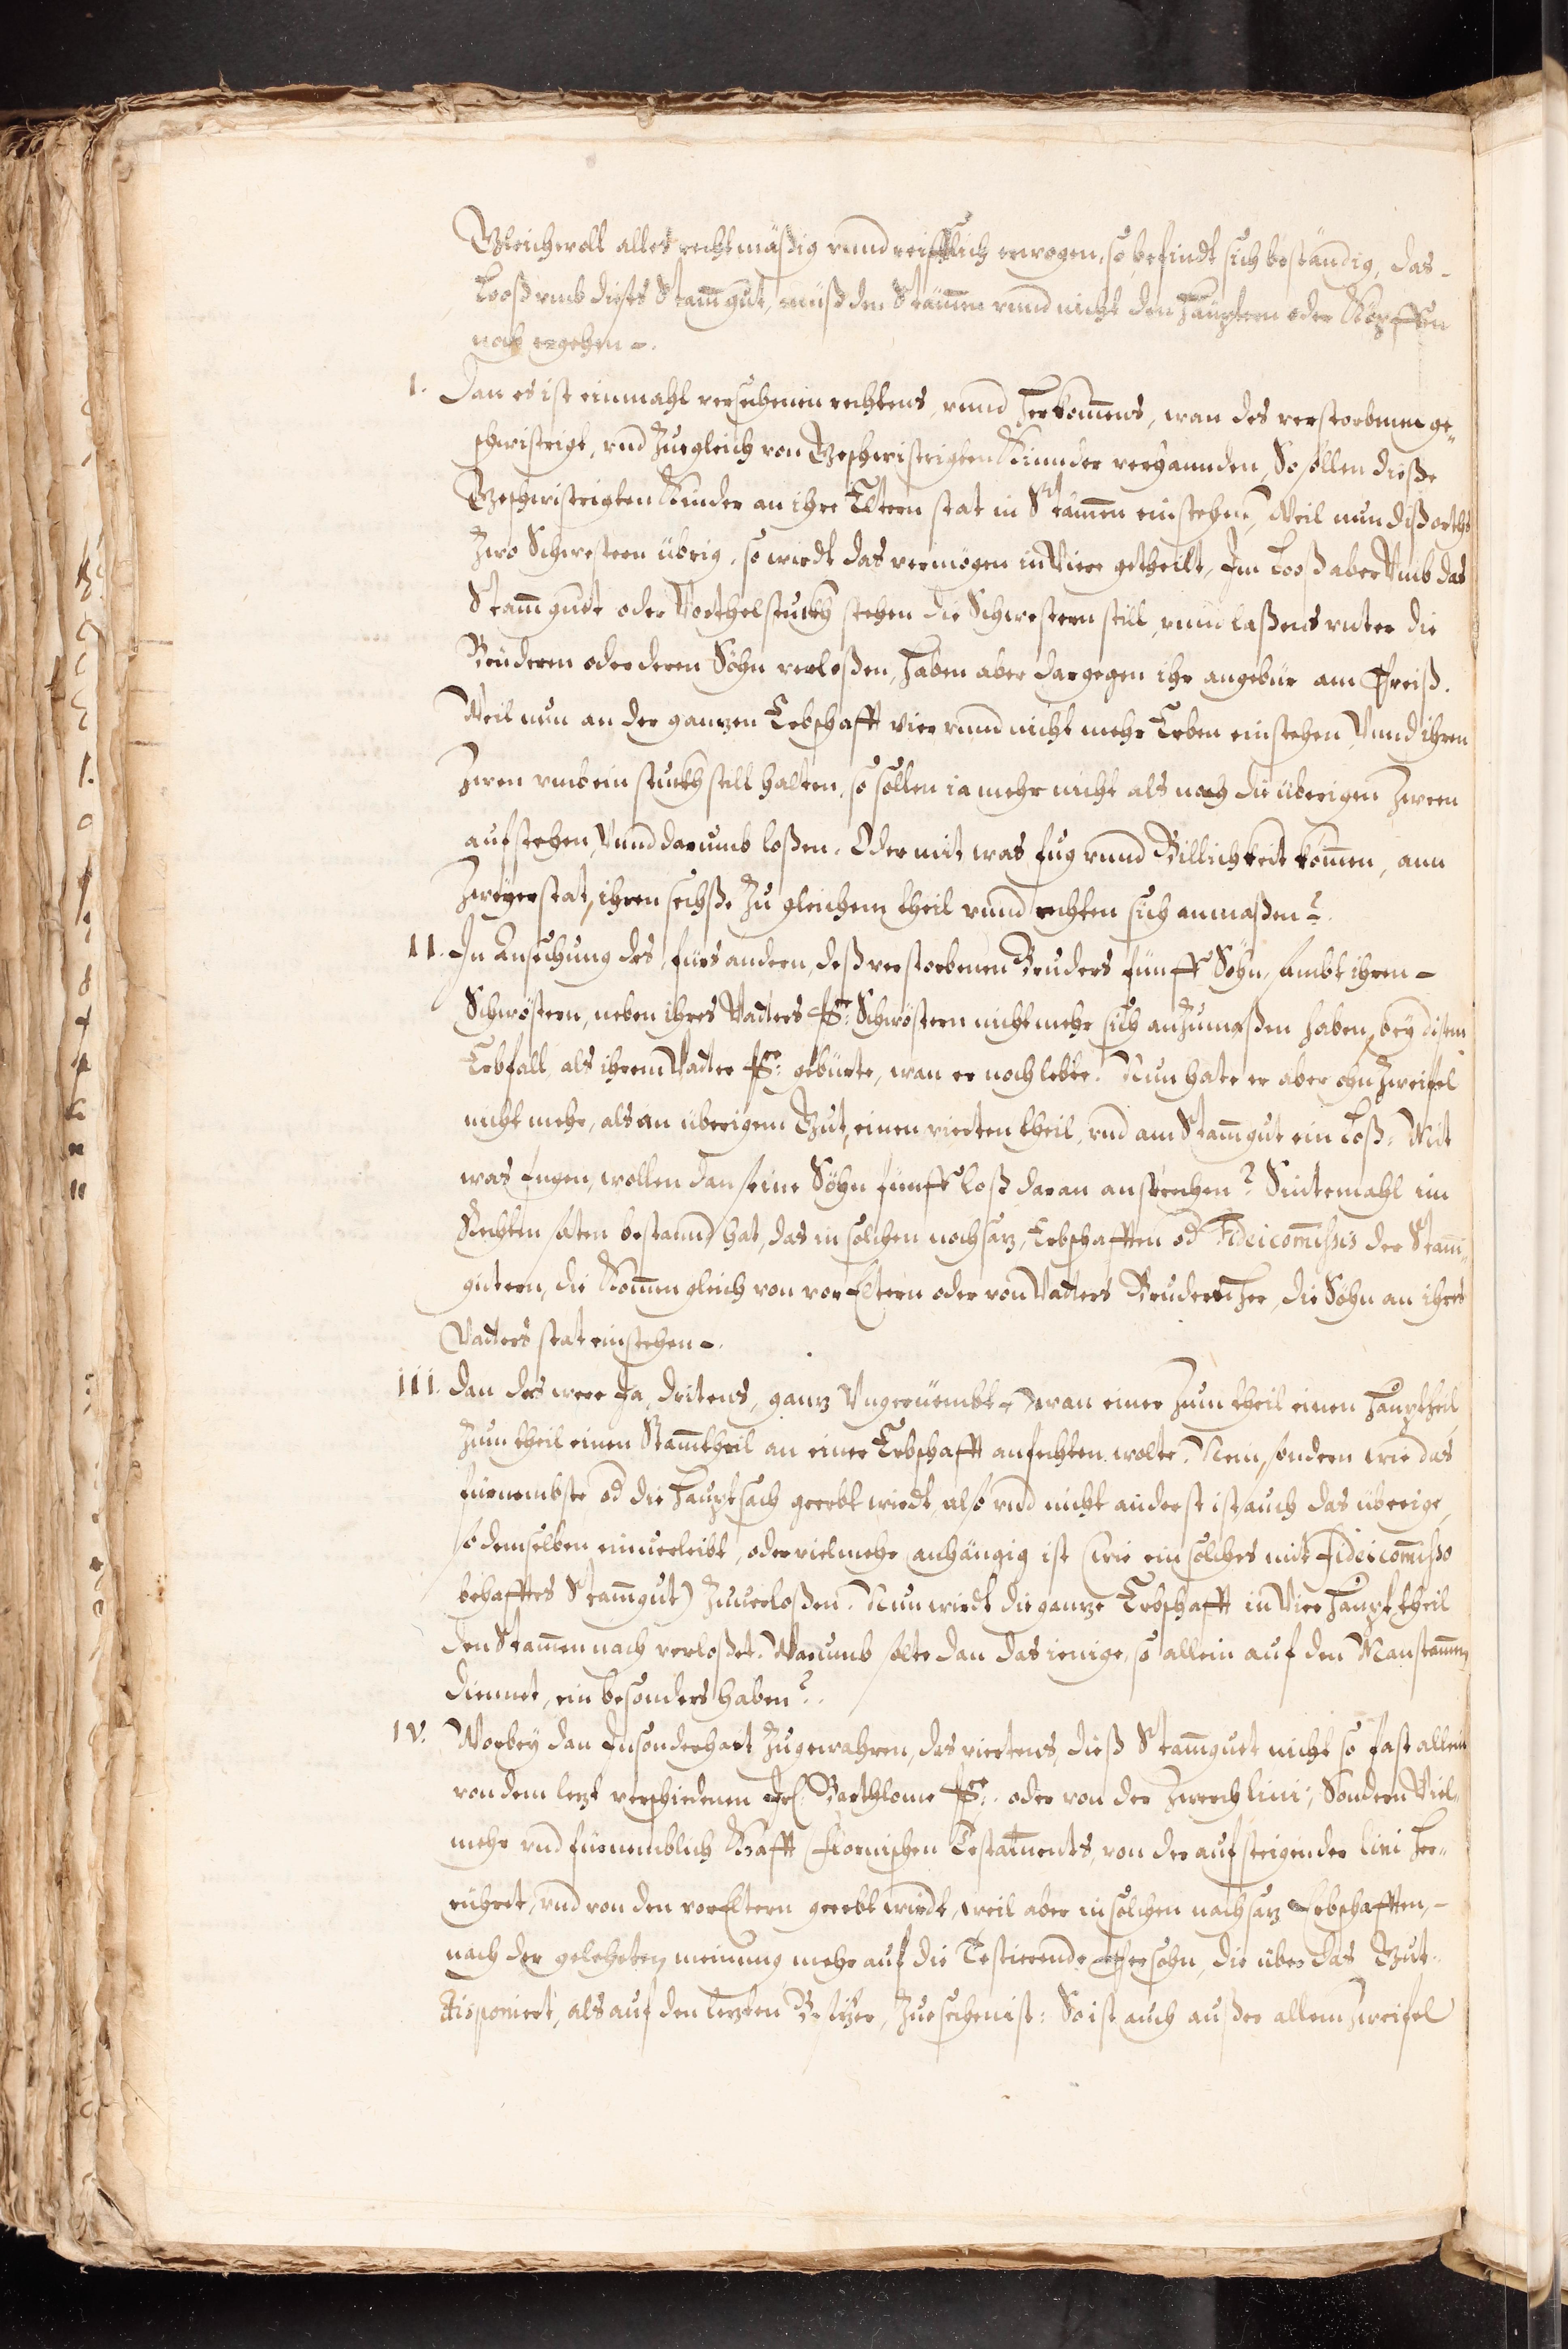 Gleichwoll alles rechtmäßig vnnd reifflich erwogen, so befindt sich beständig, das
Looß vmb dises Stam̄gut, müß den Stäm̄en vnnd nicht den Häuptern oder Köpffen
nach ergehen.
I. Dan es ist einmahl versehenen rechtens, vnnd Herkom̄ens, wan des verstorbenen ge„
schwistrigt, vnd Zuegleich von Geschwistrigten Kinnder verhannden, So sollen dieße
Geschwistrigten Kinder an ihre Eltern stat in Stäm̄en einstehen, Weil nun dißorths
Zwo Schwestern übrig, so wirdt das vermögen in Viere getheilt, Im Looß aber Vmb das
Stam̄guet oder Vorthelstuckh stehen die Schwestern still, vnnd laßens vnter die
Brüderen oder deren Söhn verloßen, haben aber dargegen ihr angebür am Preiß.
Weil nun an der ganzen Erbschafft vier vnnd nicht mehr Erben einstehen, Vnnd ihren
Zwen vmb ein stuckh still halten, so sollen ia mehr nicht als noch die überigen Zween
aufstehen, Vnnd darumb loßen. Oder mit was fug vnnd Billichkeit kom̄en, ann
Zweyer stat, ihren sechße Zu gleichem theil vnnd rechten sich anmaßen?
II. In Ansehung des, fürs andern, deß verstorbenen Bruders fünff Söhn, sambt ihren
Schwöstern, neben ihres Vatters Schwöstern nicht mehr sich anzumaßen haben, bey disem
Erbfall, als ihrem Vatter gebürte, wan er noch lebte. Nun hate er aber ohn Zweifel
nicht mehr, als an überigem Gut, einen vierten theil, vnd am Stam̄gut ein Loß. Mit
was fugen, wollen dan seine Söhn fünff loß daran ansprechen? Sintemahl im
Rechten seten bestannd hat, das in solchen nochsaz, Erbschafften od Fideicom̄issis der Stam̄
gütern, die Kom̄en gleich von vorEltern oder von Vatters Bruder Her, die Söhn an ihres
Vatters stat einstehen.
III. Dan das were Ja, dritens, ganz Vngereümbt, wan einer Zum theil einen Haupttheil,
Zum theil einen Stam̄theil an einer Erbschafft anfechten wolte. Nein, sondern wie das
fürnembste od die Hauptsach geerbt wirdt, also vnd nicht anderst ist auch das überige,
so demselben einuerleibt, oder vielmehr anhängig ist (wie ein solches mit Fideicom̄isso
behafftes Stam̄gut) Zuuerloßen. Nun wirdt die ganze Erbschafft in Vier Haupttheil
den Stam̄en nach verloßet. Warumb solte dan das ienige, so allein auf den Manstam̄en
diennet, ein besonders haben?
IV. Worbey dan Insonderheit Zugewahren, das viertens, dieß Stam̄guet nicht so fast allein
von dem lezt verschiedenen Barthlome oder von der Zwerch lini, Sondern Viel„
mehr vnd fürnemblich Krafft Testaments, von der aufsteigender lini Her„
rühret, vnd von den vorEltern geerbt wirdt, weil aber in solchen nachsaz Erbschafften,
nach der gelehrten meinung mehr auf die Testierende Persohn, die über das Gut
disponiert, als auf den lezten Besizer, Zuesehen ist: So ist auch außer allem Zweifel